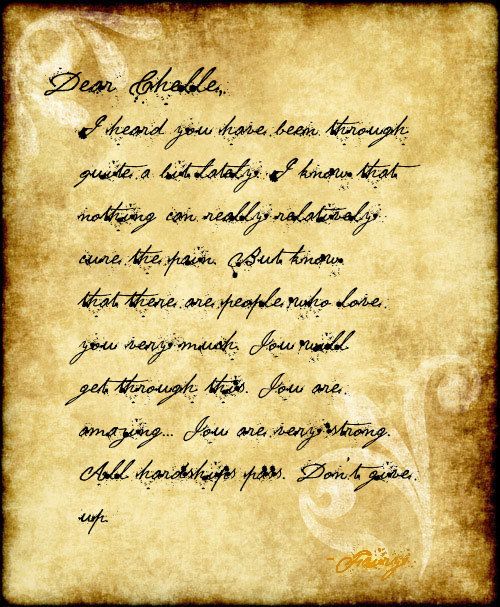 Dear Chelle,
I heard you have been through
quite a bit lately. I know that
nothing can really relatively
cure the pain. But know
that there are people who love
you very much. You will
get through this. You are
amazing... You are very strong.
All hardships pass. Don't give
up.